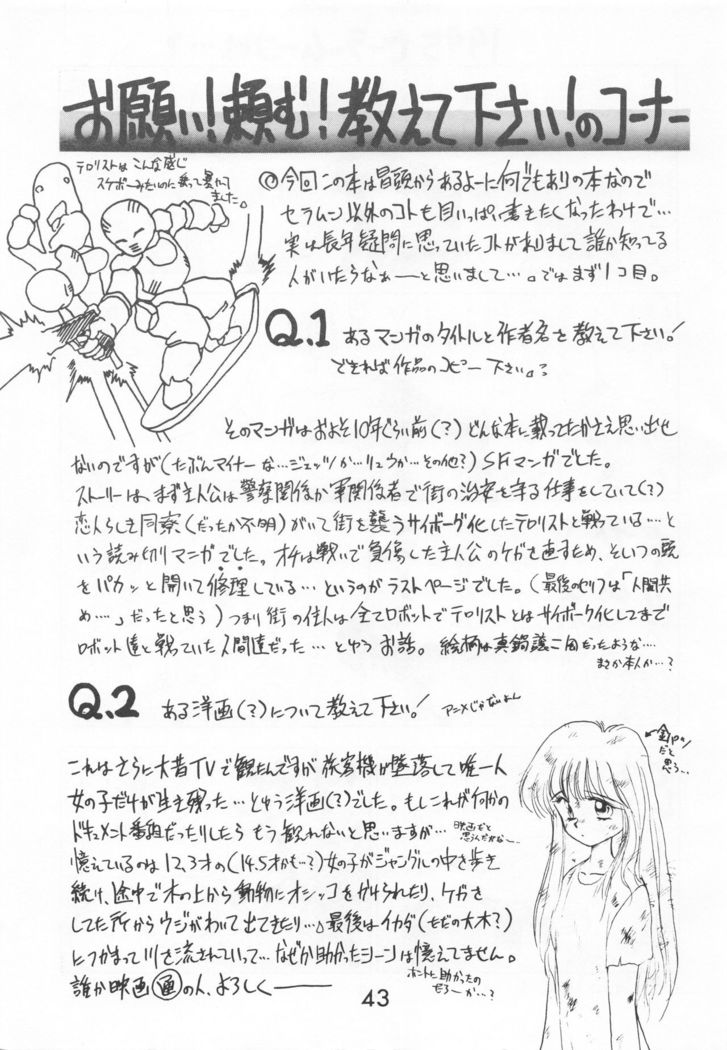 お願い!頼む!教えて下さい!のコーナー
テロリストはこんな感じ
スケボーみたいのに乗って暴れて
ました。
◎今回この本は冒頭からあるよーに何でもありの本なので
セラムン以外のコトも目いっぱい書きたくなったわけで…
実は長年疑問に思っていたコトがありまして誰か知ってる
人がいたらなぁ──と思いまして…。ではまず1コ目。
Q.1 あるマンガのタイトルと作者名を教えて下さい!
できれば作品のコピー下さい。
そのマンガはおよそ10年ぐらい前(?)どんな本に載ってたかさえ思い出せ
ないのですが(たぶんマイナーな…ジェッツか…リュウか…その他?)SFマンガでした。
ストーリーは、まず主人公は警察関係か軍関係者で街の治安を守る仕事をしていて(?)
恋人らしき同寮(だったか不明)がいて街を襲うサイボーグ化したテロリストと戦っている…と
いう読み切りマンガでした。オチは戦いで負傷した主人公のケガを直すため、そいつの頭
をパカッと開いて修理している…というのがラストページでした。(最後のセリフは「人間共
め…」だったと思う)つまり街の住人は全てロボットでテロリストとはサイボーグ化してまで
ロボット達と戦っていた人間達だった…とゆうお話。絵柄は真鍋譲二風だったような…
まさか本人か…?
Q.2 ある洋画(?)について教えて下さい! アニメじゃないよん
これはさらに大昔TVで観たんですが旅客機が墜落して唯一人
女の子だけが生き残った…とゆう洋画(?)でした。もしこれが何かの
ドキュメント番組だったりしたらもう観れないと思いますが…
映画だと
思うんだがな〜
憶えているのは12,3才の(14,5才かも…?)女の子がジャングルの中を歩き
続け、途中で木の上から動物にオシッコをかけられたり、ケガを
してた所からウジがわいて出てきたり…。最後はイカダ(ただの大木?)
につかまって川を流されていって…なぜか助かったシーンは憶えてません。
ホントに助かったの
だろーか…?
誰か映画通の人、よろしく───
←金パツ
だと
思う…
43